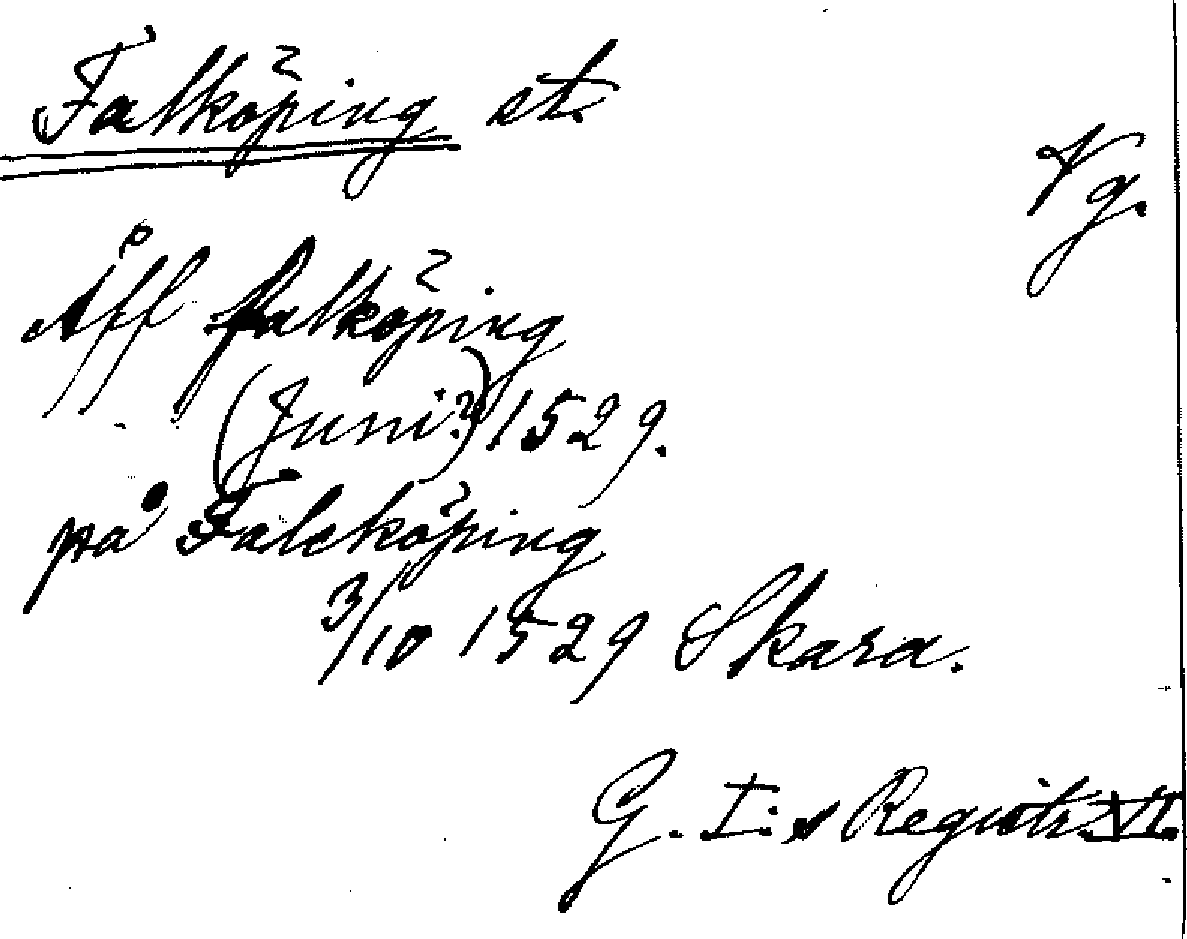 Falköping st.
Vg.
Åff Falköping
(Juni?) 1529.
på Falcköping
3/10 1529 Skara.
G. I:s Registr. VI.